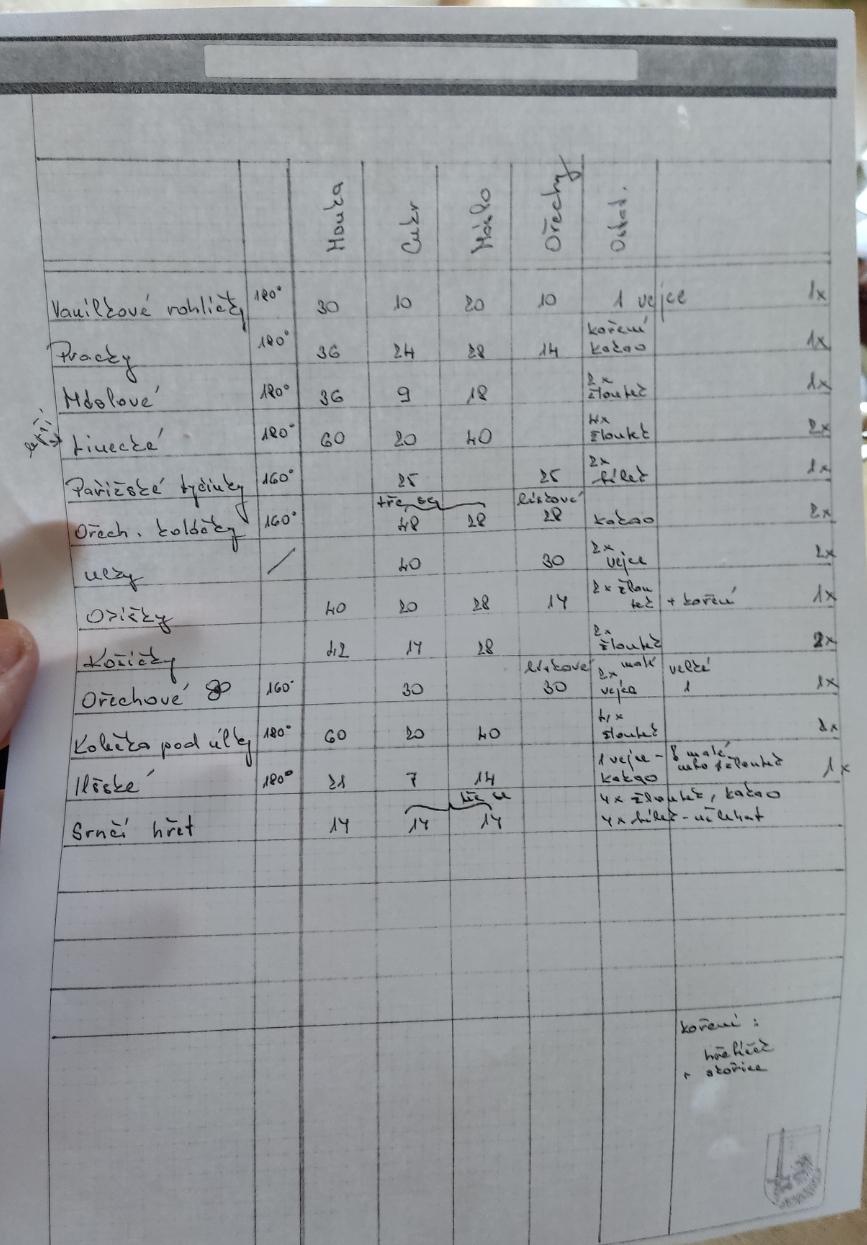 Mouka Cukr Máslo Ořechy Ostat.
Vanilkové rohlíčky 180° 30 10 20 10 1 vejce 1x
Pracky 180° 36 24 28 14 koření kakao 1x
Máslové 180° 36 9 18 2x žloutek 1x
Linecké 180° 60 20 40 4x žloutek 2x
Pařížské tyčinky 160° 25 25 2x bílek 1x
Ořech. koláčky 160° tře se 48 28 lískové 28 kakao 2x
Úlky / 40 30 2x vejce 2x
Oříšky 40 20 28 14 2x žloutek + koření 1x
Košíčky 42 14 28 2x žloutek 2x
Ořechové 8 160° 30 lískové 30 2x malé vejce velké 1 1x
Kolečka pod úlky 180° 60 20 40 4x žloutek
Išlské 180° 21 7 14 1 vejce - malé nebo žloutek kakao 1x
Srnčí hřbet 14 14 14 tře se 4x žloutek, kakao
4x bílek - ušlehat
koření :
hřebíček
+ skořice